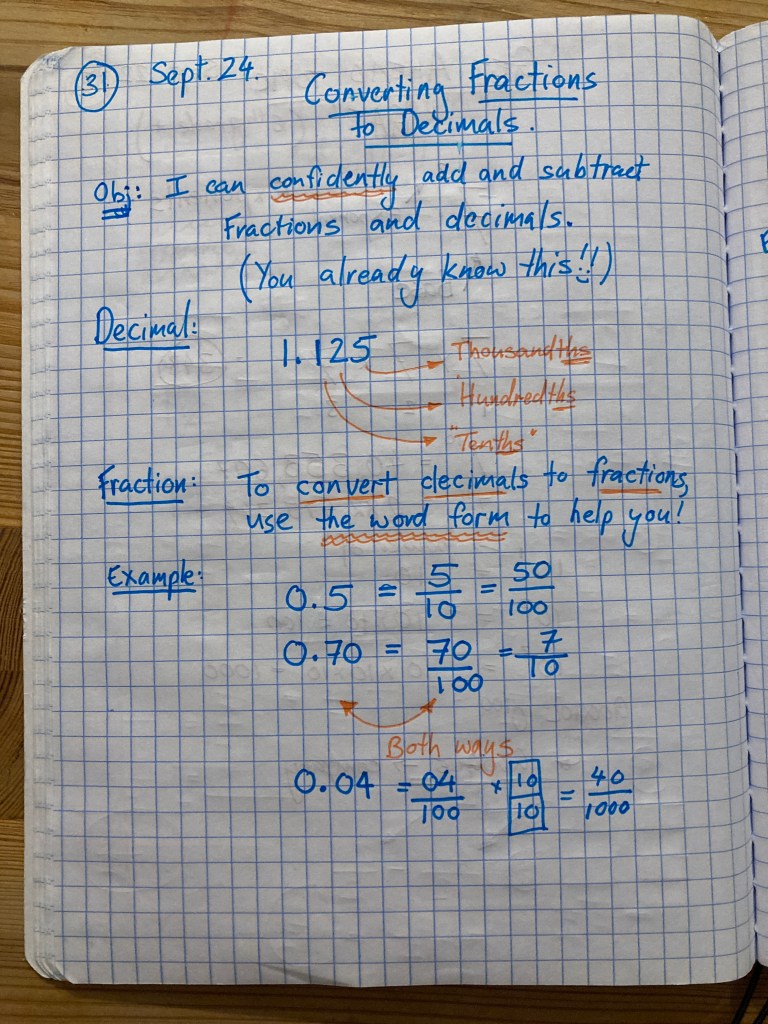 31 Sept. 24.
Converting Fractions
to Decimals.
Obj: I can confidently add and subtract
Fractions and decimals.
(You already know this!!)
Decimal:
1.125
Thousandths
Hundredths
"Tenths"
Fraction: To convert decimals to fractions,
use the word form to help you!
Example:
0.5 = 5/10 = 50/100
0.70 = 70/100 = 7/10
Both ways
0.04 = 04/100 × 10/10 = 40/1000